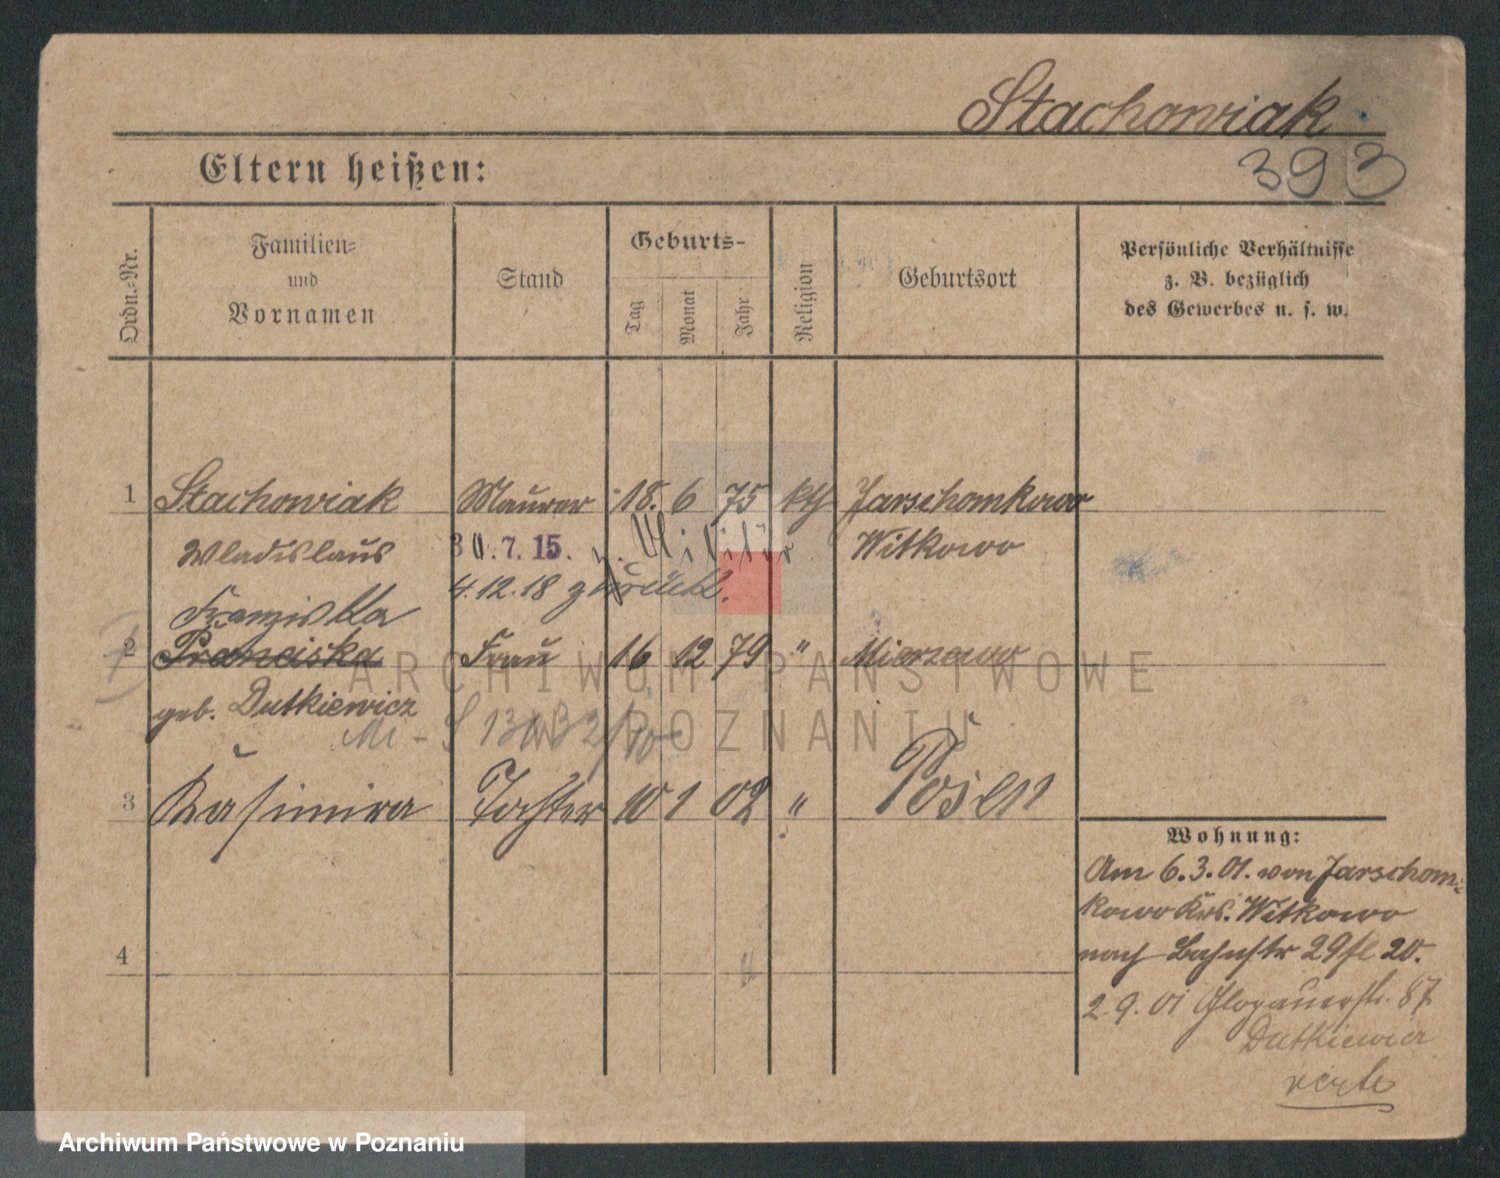 Stachowiak
393
Eltern heißen:
Ordn.-Nr.
Familien-
und
Vornamen
Stand
Geburts-
Tag
Monat
Jahr
Religion
Geburtsort
Persönliche Verhältnisse
z. B. bezüglich
des Gewerbes u. s. w.
1 Stachowiak Maurer 18. 6 75 kth Jarschomkowo
Wladislaus 30.7.15. z. Militär Witkowo
4.12.18 zurück.
Franziska
2 Franciska Frau 16 12 79 " Mierzewo
geb. Dutkiewicz
3 Kasimira Tochter 10 1 02 " Posen
4
Wohnung:
Am 6.3.01. von Jarschom-
kowo Krs. Witkowo
nach Bahnstr 29 fl 20.
2.9.01 Glogauerstr. 87
Dutkiewicz
verte
ARCHIWUM PAŃSTWOWE
W POZNANIU
Archiwum Państwowe w Poznaniu